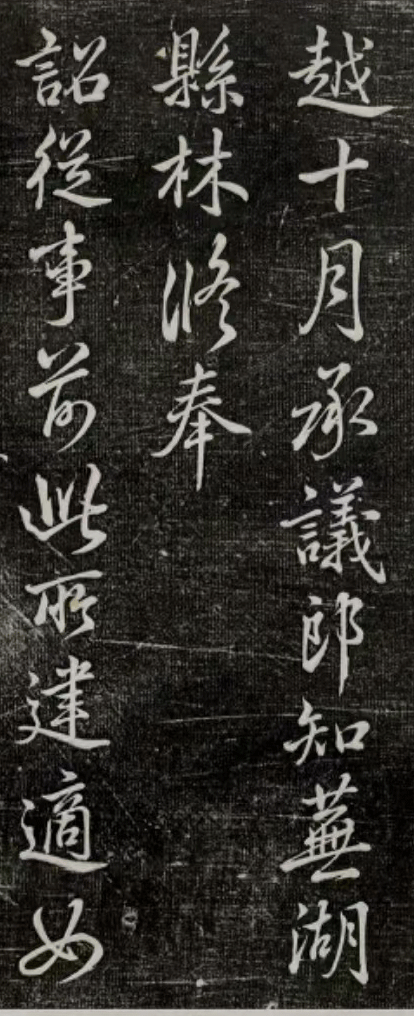 越十月承議郎知蕪湖
縣林脩奉
詔從事前此所建適女